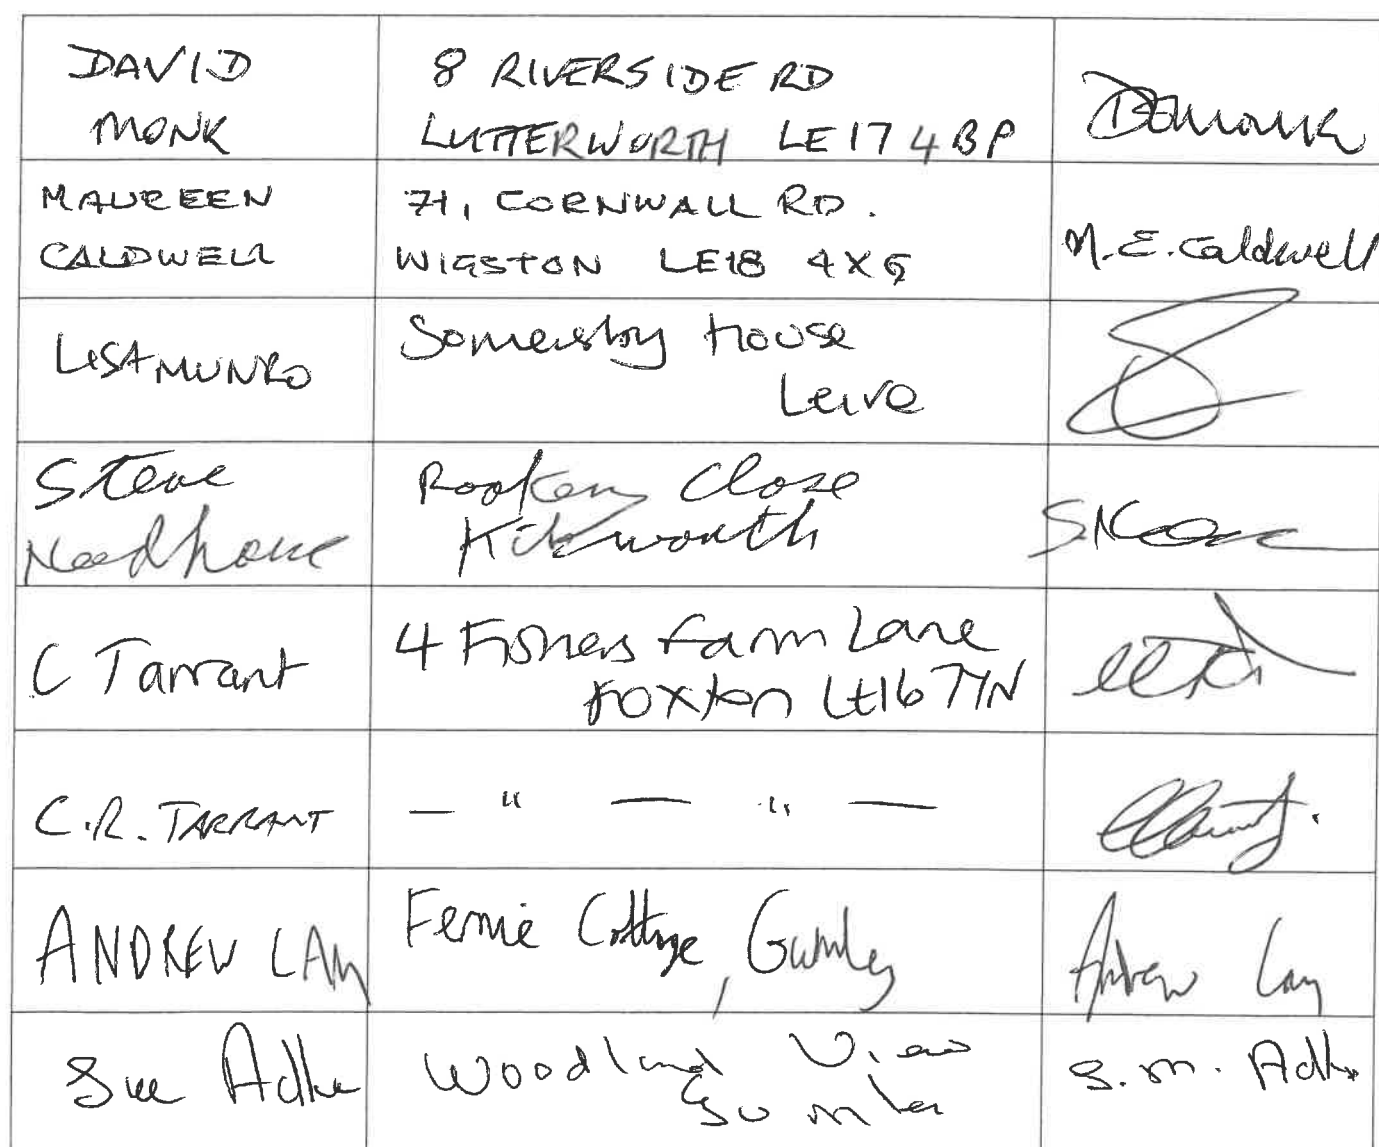 DAVID
MONK
8 RIVERSIDE RD
LUTTERWORTH LE17 4BP
MAUREEN
CALDWELL
71, CORNWALL RD.
WIGSTON LE18 4XG
M.E. Caldwell
LISA MUNRO
Somersby House
Leire
Steve
Rookery Close
Kibworth
C Tarrant
4 Fishers Farm Lane
Foxton LE16
C.R. TARRANT
— " — " —
ANDREW
Fernie Cottage, Gumley
Andrew
Sue
Woodland View
Gumley
S.M.